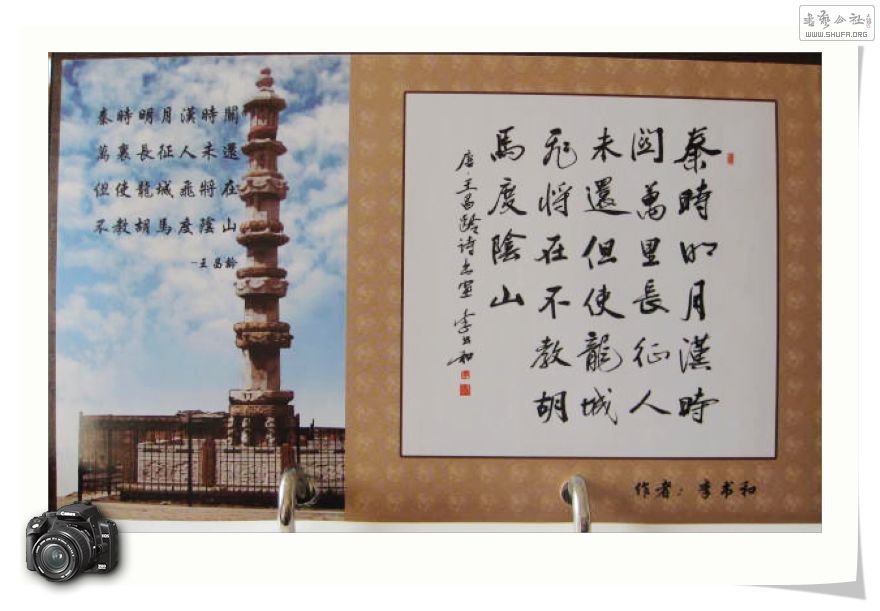 書藝公社
WWW.SHUFA.ORG
秦時明月漢時關
萬裏長征人未還
但使龍城飛將在
不教胡馬度陰山
-王昌齡
秦時明月漢時
関萬里長征人
未還但使龍城
飛将在不教胡
馬度陰山
唐·王昌齡诗出塞 李书和
作者：李书和
Canon
EOS